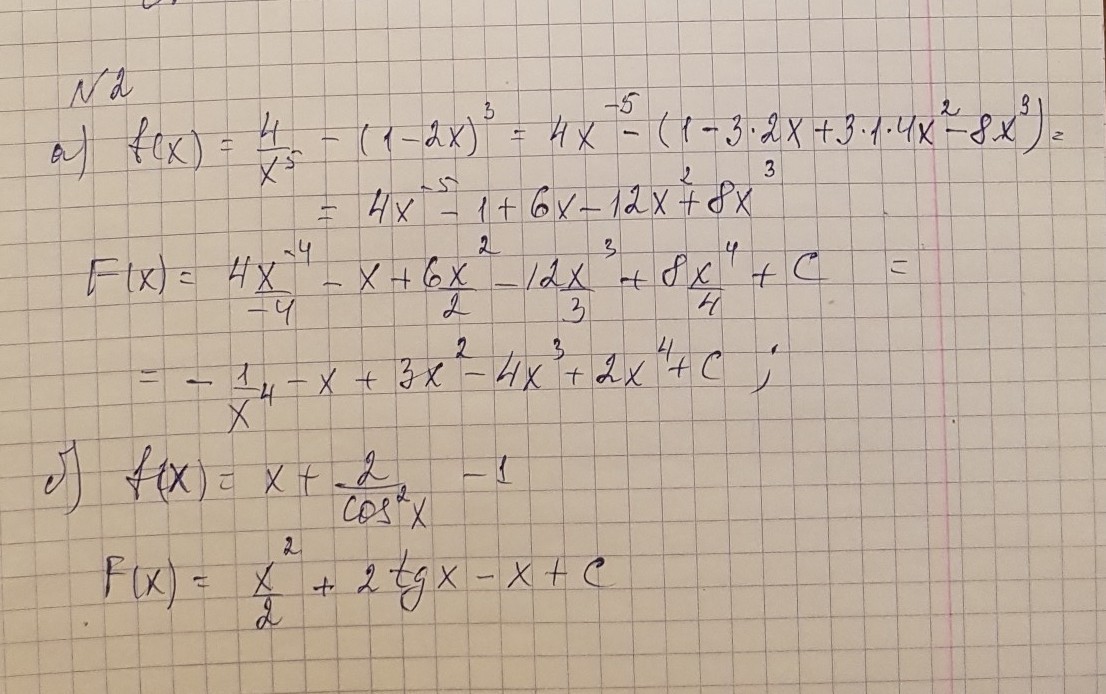 N2
а) f(x) = 4/x⁵ - (1-2x)³ = 4x⁻⁵ - (1-3·2x+3·1·4x²-8x³) =
= 4x⁻⁵ - 1 + 6x - 12x² + 8x³
F(x) = 4x⁻⁴/-4 - x + 6x²/2 - 12x³/3 + 8x⁴/4 + C =
= - 1/x⁴ - x + 3x² - 4x³ + 2x⁴ + C ;
б) f(x) = x + 2/cos²x - 1
F(x) = x²/2 + 2 tg x - x + C